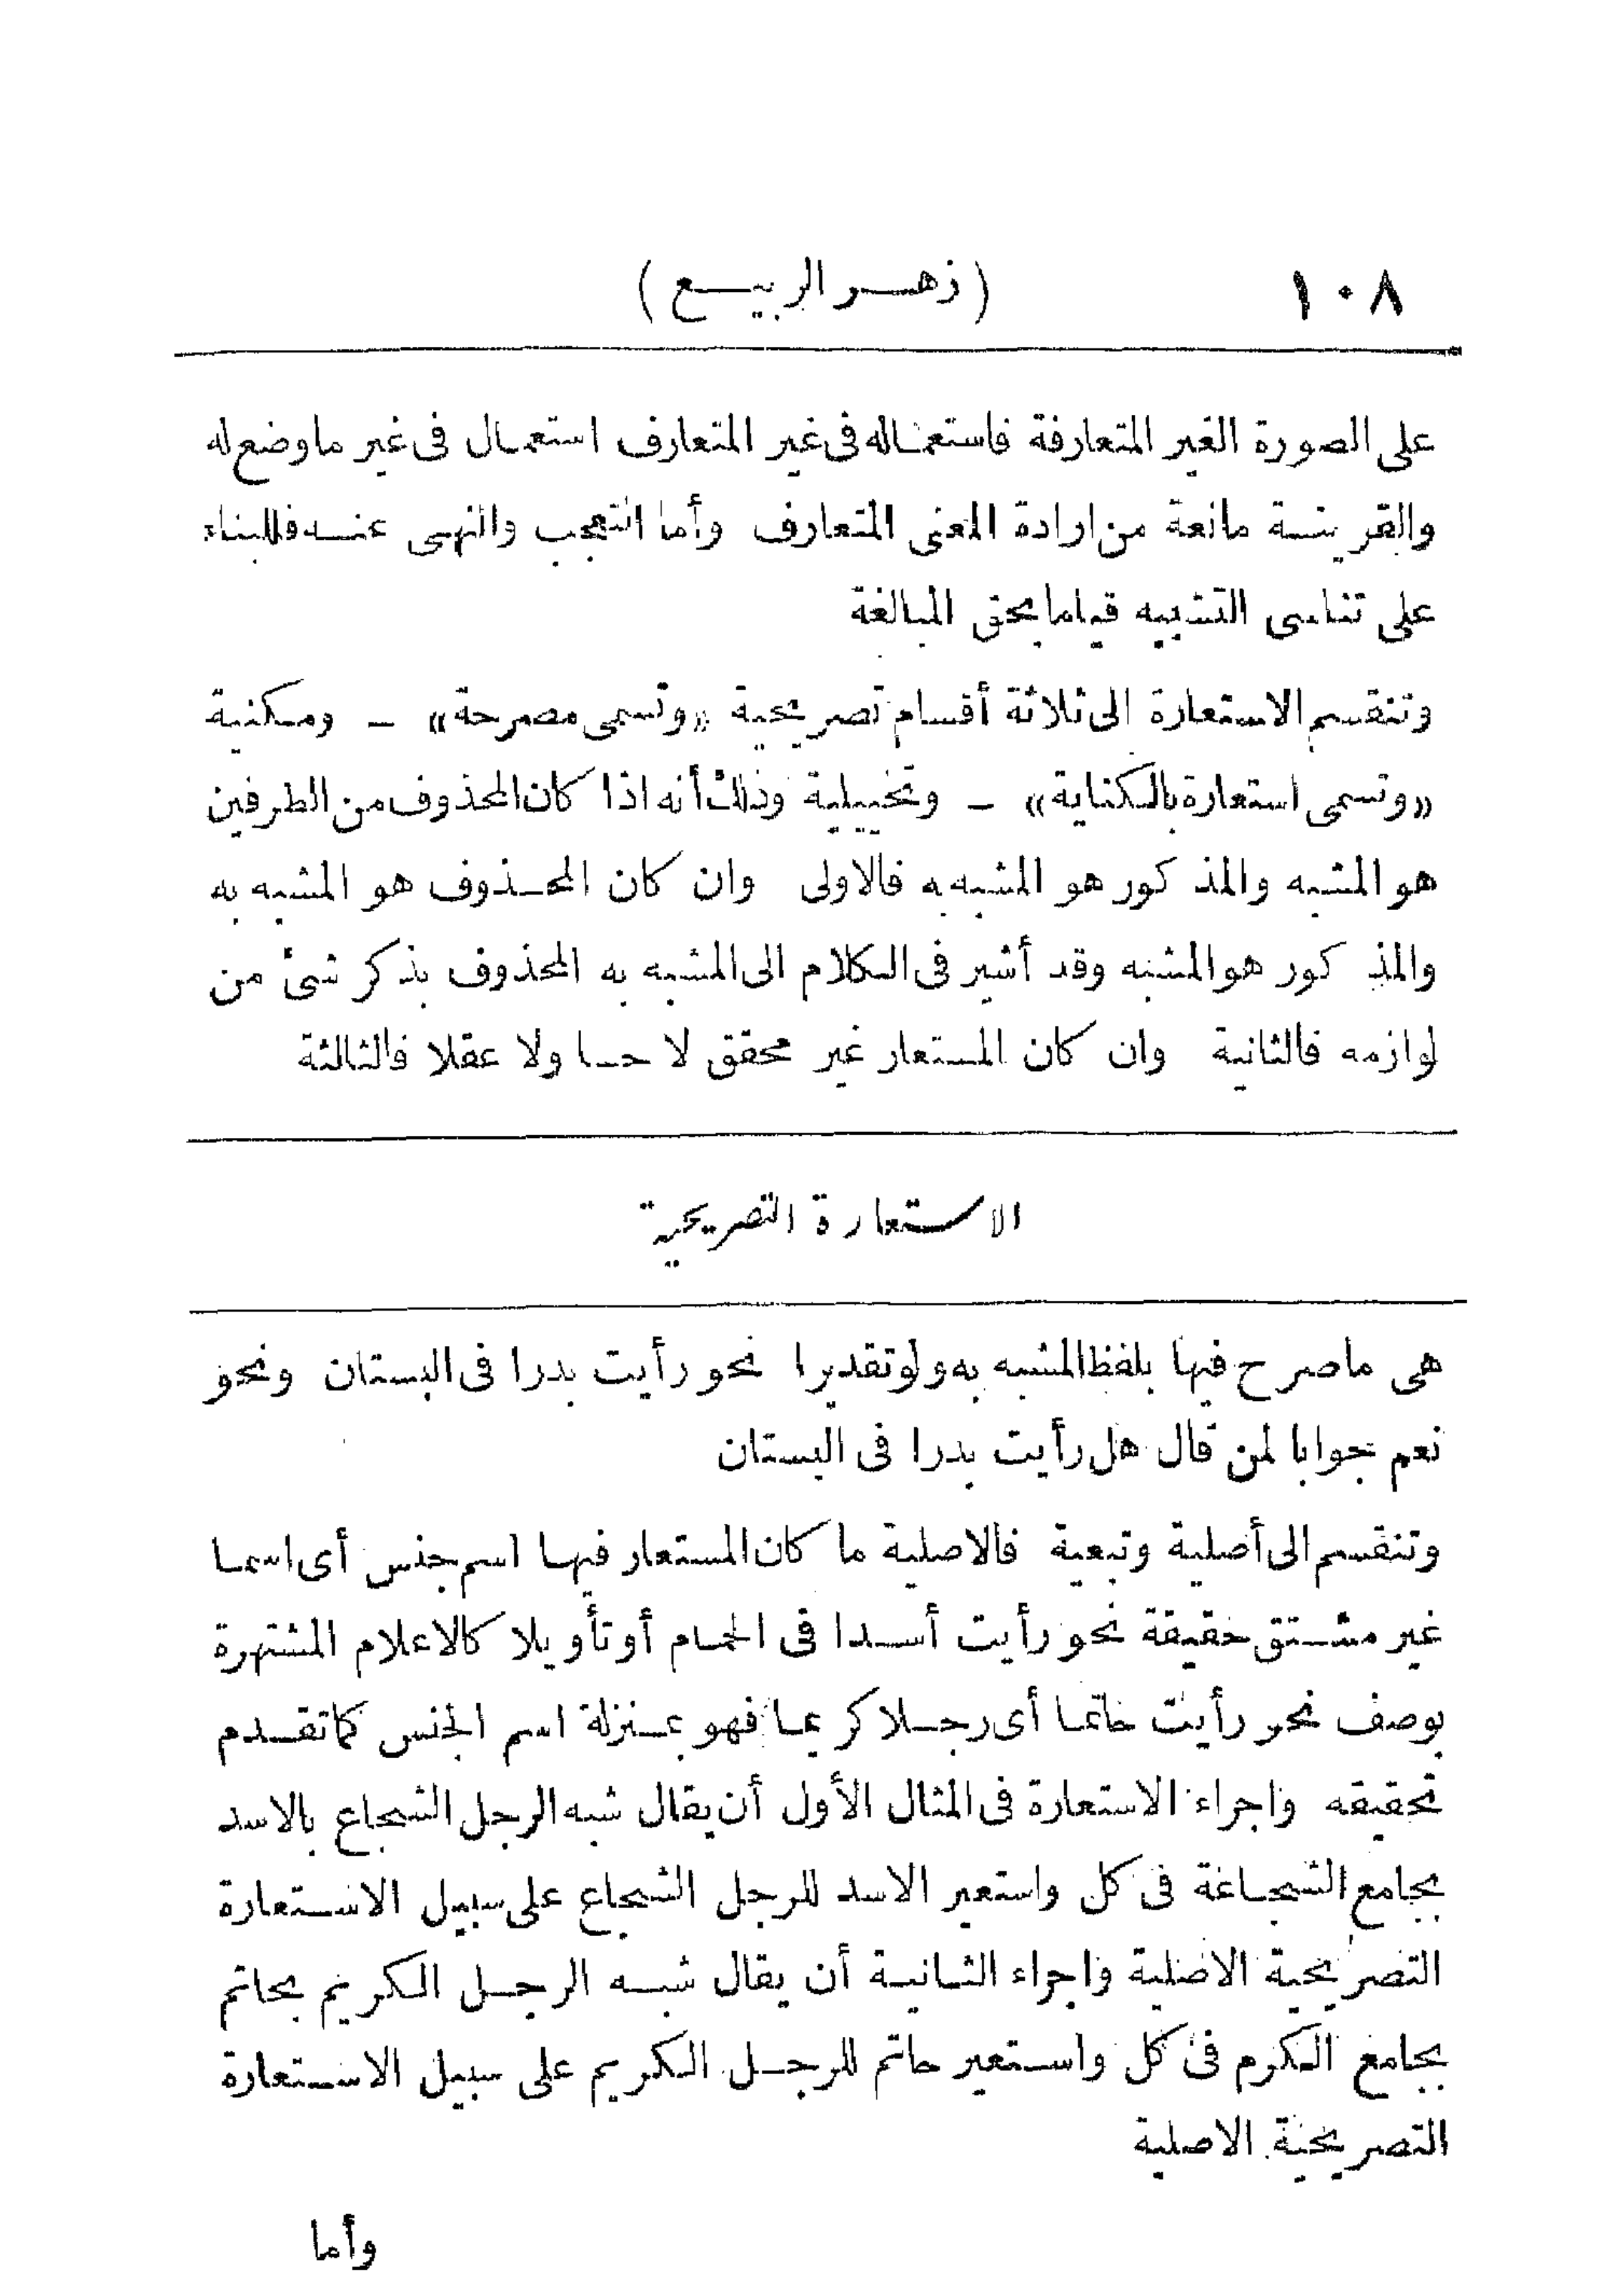 ١٠٨ (زهر الربيع)
على الصورة الغير المتعارفة فاستعماله فى غير المتعارف استعمال فى غير ما وضع له
والقرينة مانعة من ارادة المعنى المتعارف وأما التعجب والنهى عنه فللبناء
على تناسى التشبيه قياما بحق المبالغة
وتنقسم الاستعارة الى ثلاثة أقسام تصريحية «وتسمى مصرحة» ـ ومكنية
«وتسمى استعارة بالكناية» ـ وتخييلية وذلك أنه اذا كان المحذوف من الطرفين
هو المشبه والمذكور هو المشبه به فالاولى وان كان المحذوف هو المشبه به
والمذكور هو المشبه وقد أشير فى الكلام الى المشبه به المحذوف بذكر شئ من
لوازمه فالثانية وان كان المستعار غير محقق لا حسا ولا عقلا فالثالثة
الاستعارة التصريحية
هى ما صرح فيها بلفظ المشبه به ولو تقديرا نحو رأيت بدرا فى البستان ونحو
نعم جوابا لمن قال هل رأيت بدرا فى البستان
وتنقسم الى أصلية وتبعية فالاصلية ما كان المستعار فيها اسم جنس أى اسما
غير مشتق حقيقة نحو رأيت أسدا فى الحمام أو تأويلا كالاعلام المشتهرة
بوصف نحو رأيت حاتما أى رجلا كريما فهو بمنزلة اسم الجنس كما تقدم
تحقيقه واجراء الاستعارة فى المثال الأول أن يقال شبه الرجل الشجاع بالاسد
بجامع الشجاعة فى كل واستعير الاسد للرجل الشجاع على سبيل الاستعارة
التصريحية الاصلية واجراء الثانية أن يقال شبه الرجل الكريم بحاتم
بجامع الكرم فى كل واستعير حاتم للرجل الكريم على سبيل الاستعارة
التصريحية الاصلية
وأما